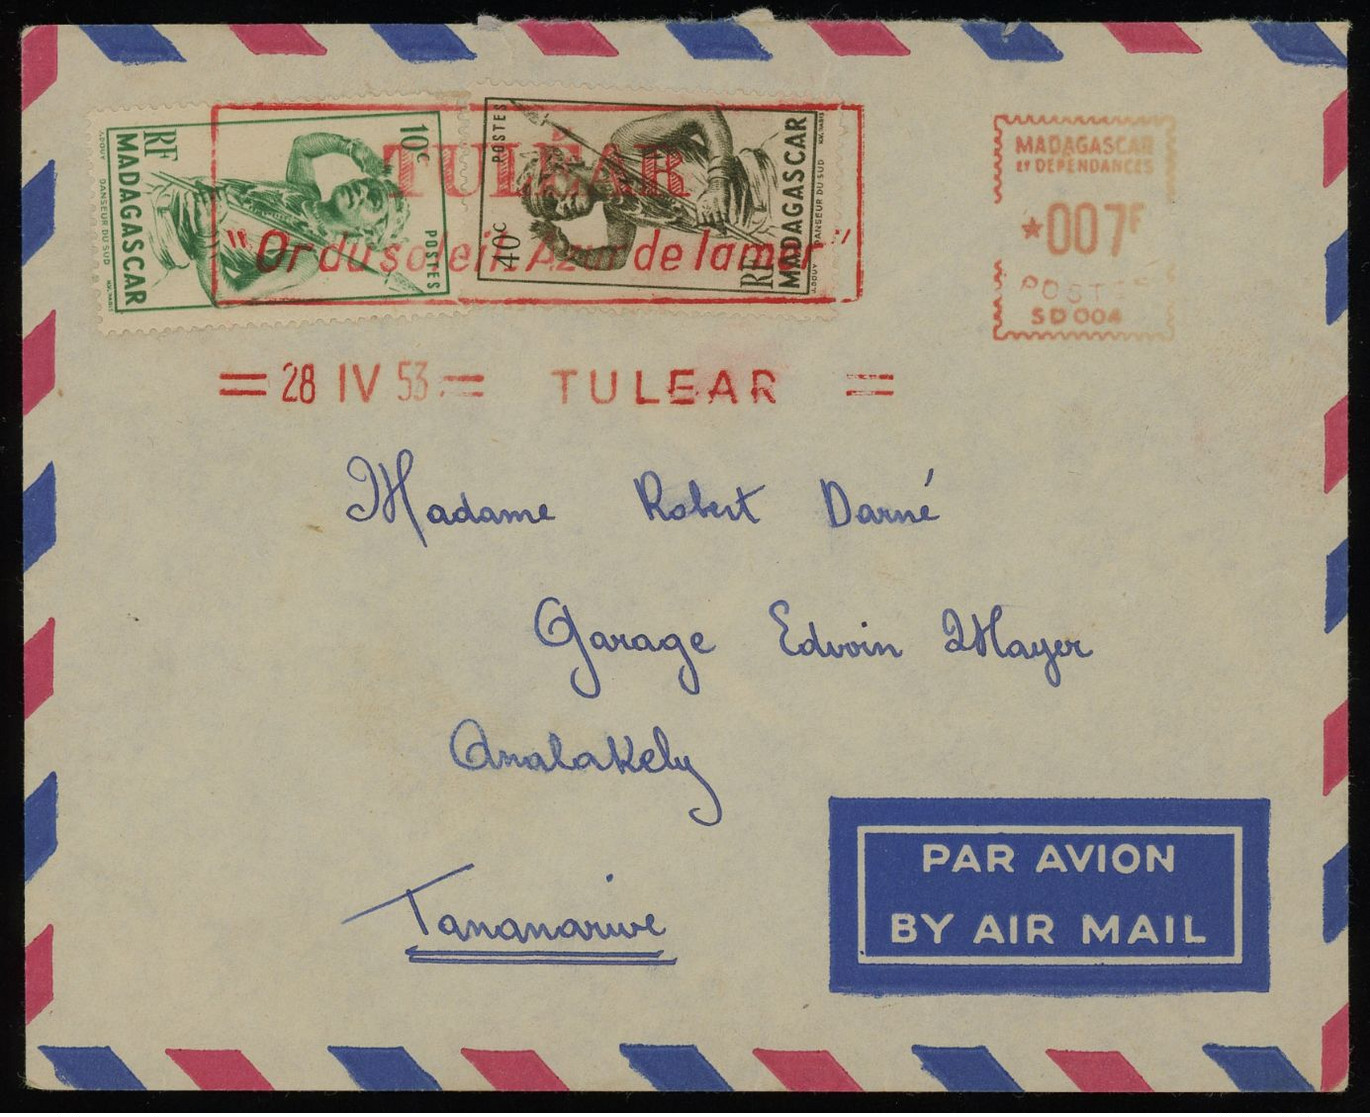 10c
POSTES
RF
MADAGASCAR
DANSEUR DU SUD
POSTES
40c
RF
MADAGASCAR
DANSEUR DU SUD
TULÉAR
"Or du soleil. Azur de la mer"
MADAGASCAR
ET DÉPENDANCES
*007F
POSTES
SD004
= 28 IV 53 = TULEAR =
Madame Robert Darné
Garage Edwin Mayer
Analakely
Tananarive
PAR AVION
BY AIR MAIL